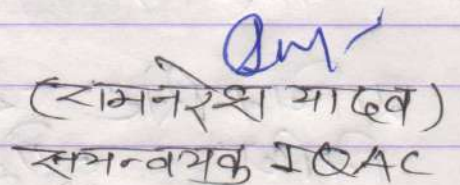 (रामनरेश यादव)
समन्वयक IQAC